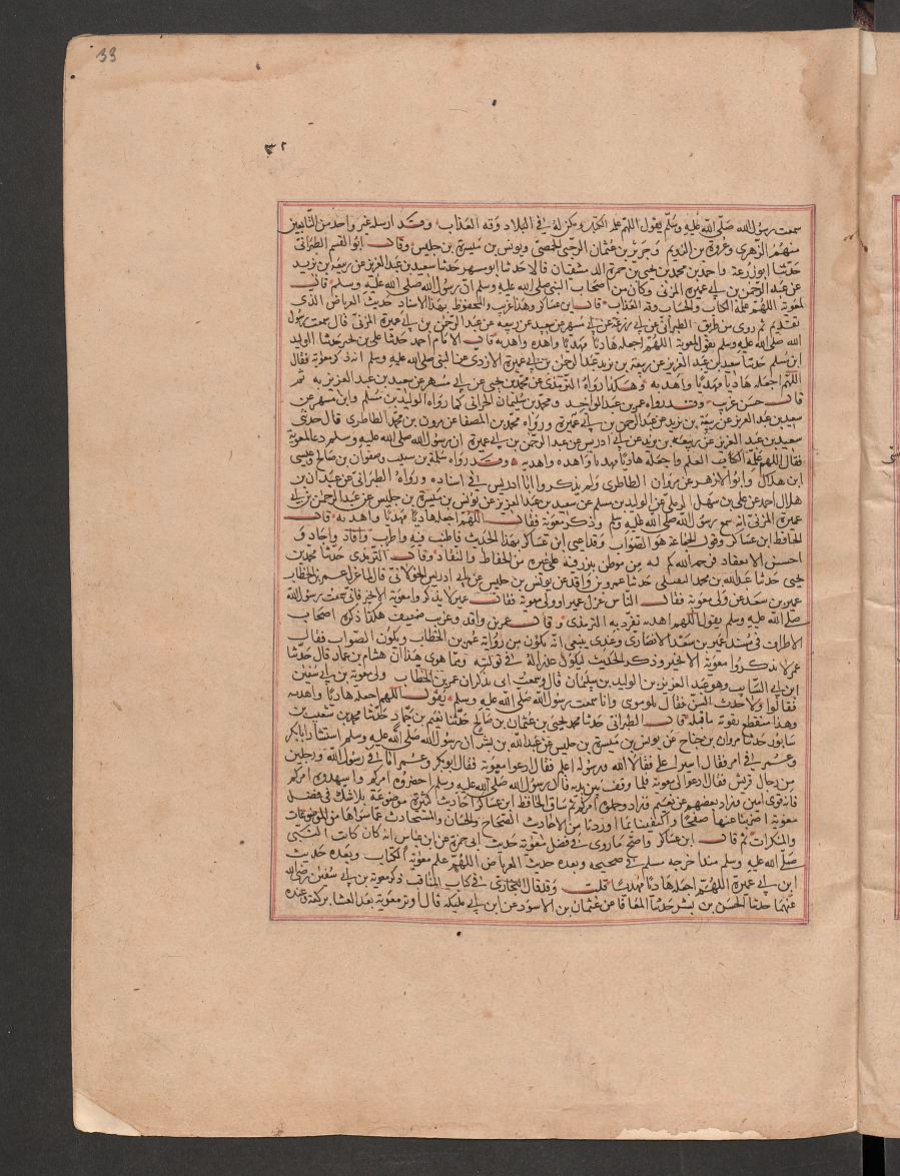 33
٣٢
سمعت رسول الله صلى الله عليه وسلم يقول اللهم علمه الكتاب ومكن له في البلاد وقه العذاب وقد ارسله غير واحد من التابعين
منهم الزهري وعروة بن رويم وحريز بن عثمان الرحبي الحمصي ويونس بن ميسرة بن حلبس وقال ابو القسم الطبراني
حدثنا ابو زرعة واحمد بن محمد بن يحيى بن حمزة الدمشقيان قالا حدثنا ابو مسهر حدثنا سعيد بن عبد العزيز عن ربيعة بن يزيد
عن عبد الرحمن بن ابي عميرة المزني وكان من اصحاب النبي صلى الله عليه وسلم ان رسول الله صلى الله عليه وسلم قال
لمعوية اللهم علمه الكتاب والحساب وقه العذاب قال ابن عساكر وهذا غريب والمحفوظ بهذا الاسناد حديث العرباض الذي
تقدم ثم روى من طريق الطبراني عن ابي زرعة عن ابي مسهر عن سعيد عن ربيعة عن عبد الرحمن بن ابي عميرة المزني قال سمعت رسول
الله صلى الله عليه وسلم يقول لمعوية اللهم اجعله هاديا مهديا واهده واهد به قال الامام احمد حدثنا علي بن بحر حدثنا الوليد
ابن مسلم حدثنا سعيد بن عبد العزيز عن ربيعة بن يزيد عن عبد الرحمن بن ابي عميرة الازدي عن النبي صلى الله عليه وسلم انه ذكر معوية فقال
اللهم اجعله هاديا مهديا واهد به وهكذا رواه الترمذي عن محمد بن يحيى عن ابي مسهر عن سعيد بن عبد العزيز به ثم
قال حسن غريب وقد رواه عمر بن عبد الواحد ومحمد بن سليمان الحراني كما رواه الوليد بن مسلم وابو مسهر عن
سعيد بن عبد العزيز عن ربيعة بن يزيد عن عبد الرحمن بن ابي عميرة ورواه محمد بن المصفا عن مروان بن محمد الطاطري قال حدثني
سعيد بن عبد العزيز عن ربيعة بن يزيد عن ابي ادريس عن عبد الرحمن بن ابي عميرة ان رسول الله صلى الله عليه وسلم دعا لمعوية
فقال اللهم علمه العلم واجعله هاديا مهديا واهده واهد به وقد رواه سلمة بن شبيب وصفوان بن صالح وعيسى
ابن هلال وابو الازهر عن مروان الطاطري ولم يذكروا ابا ادريس في اسناده ورواه الطبراني عن عبدان بن
احمد عن علي بن سهل الرملي عن الوليد بن مسلم عن سعيد بن عبد العزيز عن يونس بن ميسرة بن حلبس عن عبد الرحمن بن ابي
عميرة المزني انه سمع رسول الله صلى الله عليه وسلم وذكر معوية فقال اللهم اجعله هاديا مهديا واهد به قال
الحافظ ابن عساكر وقول الجماعة هو الصواب وقد اعتنى ابن عساكر بهذا الحديث فاطنب فيه واطرب وافاد واجاد و
احسن الانتقاد فرحمه الله كم له من موطن برز فيه على غيره من الحفاظ والنقاد وقال الترمذي حدثنا محمد بن
يحيى حدثنا عبد الله بن محمد النفيلي حدثنا عمرو بن واقد عن يونس بن حلبس عن ابي ادريس الخولاني قال لما عزل عمر بن الخطاب
عمير بن سعد عن ولى معوية فقال الناس عزل عميرا وولى معوية فقال عمير لا تذكروا معوية الا بخير فاني سمعت رسول الله
صلى الله عليه وسلم يقول اللهم اهد به تفرد به الترمذي وقال عمرو بن واقد وغريب ضعيف هكذا ذكره اصحاب
الاطراف في مسند عمير بن سعد الانصاري وعندي ينبغي انه يكون من رواية عمر بن الخطاب ويكون الصواب فقال
عمر لا تذكروا معوية الا بخير وذكر الحديث ليكون عذرا له في توليته ومما يقوى هذا ان هشام بن عمار قال حدثنا
ابن ابي السايب وهو عبد العزيز بن الوليد بن سليمان قال وسمعت ابي يذكر ان عمر بن الخطاب ولى معوية بن ابي سفين
فقالوا ولاه حدث السن فقال تلوموني وانا سمعت رسول الله صلى الله عليه وسلم يقول اللهم اجعله هاديا واهد به
وهذا منقطع يقويه ما قبله قال الطبراني حدثنا يحيى بن عثمان بن صالح حدثنا نعيم بن حماد حدثنا محمد بن شعيب بن
سابور حدثنا مروان بن جناح عن يونس بن ميسرة بن حلبس عن عبد الله بن بشر ان رسول الله صلى الله عليه وسلم استشار ابا بكر
وعمر في امر فقال اشيروا علي فقالا الله ورسوله اعلم فقال ادعوا معوية فقال ابو بكر وعمر اما في رسول الله ورجلين
من رجال قريش فقال ادعوا لي معوية فلما وقف بين يديه قال رسول الله صلى الله عليه وسلم احضروه امركم واشهدوه امركم
فانه قوي امين وزاد بعضهم عن نعيم وزاد وحملوه امركم ثم ساق الحافظ ابن عساكر احاديث كثيرة موضوعة بلا شك في فضل
معوية اضربنا عنها صفحا واكتفينا بما اوردنا من الاحاديث الصحاح والحسان والمستجادات عما سواها من الموضوعات
والمنكرات ثم قال ابن عساكر واصح ما روي في فضل معوية حديث ابي حمزة عن ابن عباس انه كان كاتب النبي
صلى الله عليه وسلم منذ اخرجه مسلم في صحيحه وبعده حديث العرباض اللهم علم معوية الكتاب وبعده حديث
ابن ابي عميرة اللهم اجعله هاديا مهديا قلت وقد قال البخاري في كتاب المناقب ذكر معوية بن ابي سفين رضي الله
عنهما حدثنا الحسن بن بشر حدثنا المعافا عن عثمان بن الاسود عن ابن ابي مليكة قال اوتر معوية بعد العشا بركعة وعنده